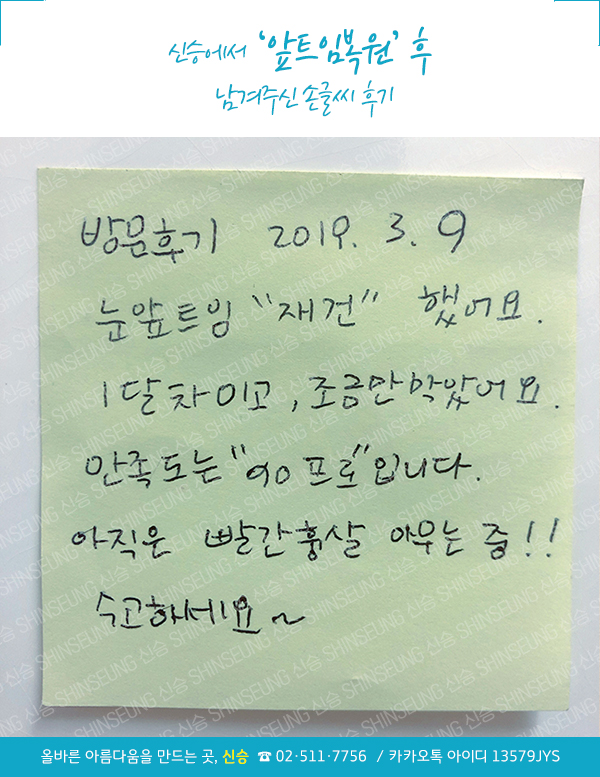 신승에서 '앞트임복원' 후
남겨주신 손글씨 후기
방문후기 2019. 3. 9
눈앞트임 "재건" 했어요.
1달차이고, 조금만 막았어요.
만족도는 "90프로"입니다.
아직은 빨간흉살 아무는 중!!
수고하세요~
올바른 아름다움을 만드는 곳, 신승 ☎ 02·511·7756 / 카카오톡 아이디 13579JYS
SHINSEUNG 신승